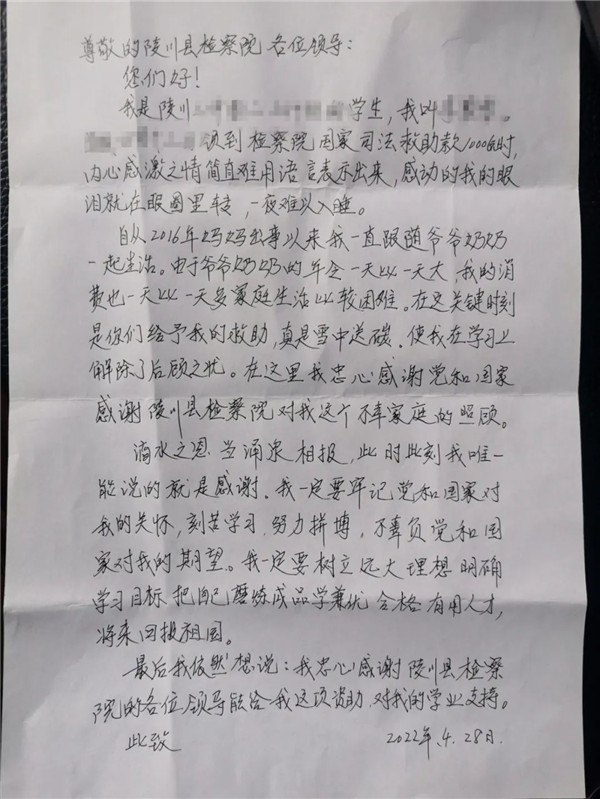 尊敬的陵川县检察院各位领导：
您们好！
我是陵川 学生，我叫 。
领到检察院国家司法救助款10000元时，
内心感激之情简直难用语言表示出来，感动的我的眼
泪就在眼圈里转，一夜难以入睡。
自从2016年妈妈出事以来我一直跟随爷爷奶奶
一起生活。由于爷爷奶奶的年令一天比一天大，我的消
费也一天比一天多家庭生活比较困难。在这关键时刻
是你们给予我的救助，真是雪中送碳．使我在学习上
解除了后顾之忧。在这里我忠心感谢党和国家
感谢陵川县检察院对我这个不幸家庭的照顾。
滴水之恩 当涌泉相报，此时此刻我唯一
能说的就是感谢．我一定要牢记党和国家对
我的关怀，刻苦学习．努力拼博，不辜负党和国
家对我的期望。我一定要树立远大理想 明确
学习目标 把自己磨炼成品学兼优 合格有用人才，
将来回报祖国。
最后我依然想说：我忠心感谢陵川县检察
院的各位领导能给我这项资助．对我的学业支持。
此致 2022年.4.28日.